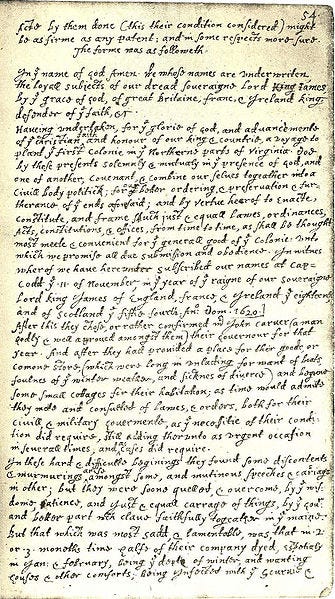 54
facte by them done (this their condition considered) might
be as firme as any patent; and in some respects more sure.
The forme was as followeth.
In yͤ name of god Amen. We whose names are underwriten,
the loyall subjects of our dread soveraigne Lord King James
by yͤ grace of god, of great Britaine, franc, & Ireland king,
defender of yͤ faith, &c
Haveing undertaken, for yͤ glorie of god, and advancemente
of yͤ christian faith and honour of our king & countrie, a voyage to
plant yͤ first colonie in yͤ Northerne parts of Virginia. Doe
by these presents solemnly & mutualy in yͤ presence of god, and
one of another, covenant, & combine our selves togeather into a
Civill body politick; for our better ordering, & preservation & fur-
therance of yͤ ends aforesaid; and by vertue hearof to enacte,
constitute, and frame such just & equall lawes, ordinances,
Acts, constitutions, & offices, from time to time, as shall be thought
most meete & convenient for yͤ generall good of yͤ colonie: unto
which we promise all due submission and obedience. In witnes
wherof we have hereunder subscribed our names at cap-
Codd yͤ .11. of November, in yͤ year of yͤ raigne of our soveraigne
Lord king James of England, france, & Ireland yͤ eighteenth
and of Scotland yͤ fiftie fourth. An: Dom. 1620.
After this they chose, or rather confirmed mr John carver (a man
godly & well approved amongst them) their governour for that
year. And after they had provided a place for their goods, or
comone store, (which were long in unlading for want of boats,
foulnes of yͤ winter weather, and sicknes of diverce) and begune
some small cottages for their habitation; as time would admitte
they mette and consulted of lawes, & orders, both for their
civill & military govermente, as yͤ necessitie of their condi-
tion did require, still adding therunto as urgent occasion
in severall times, and as cases did require.
In these hard & difficulte beginings they found some discontents
& murmurings amongst some, and mutinous speeches & cariags
in other; but they were soone quelled, & overcome, by yͤ wis-
dome, patience, and just & equall carrage of things, by yͤ gov:
and better part wch clave faithfully togeather in yͤ maine.
But that which was most sadd, & lamentable, was, that in 2.
or 3. moneths time halfe of their company dyed, espetialy
in Jan: & february, being yͤ depth of winter, and wanting
houses & other comforts; being Infected with yͤ scurvie &